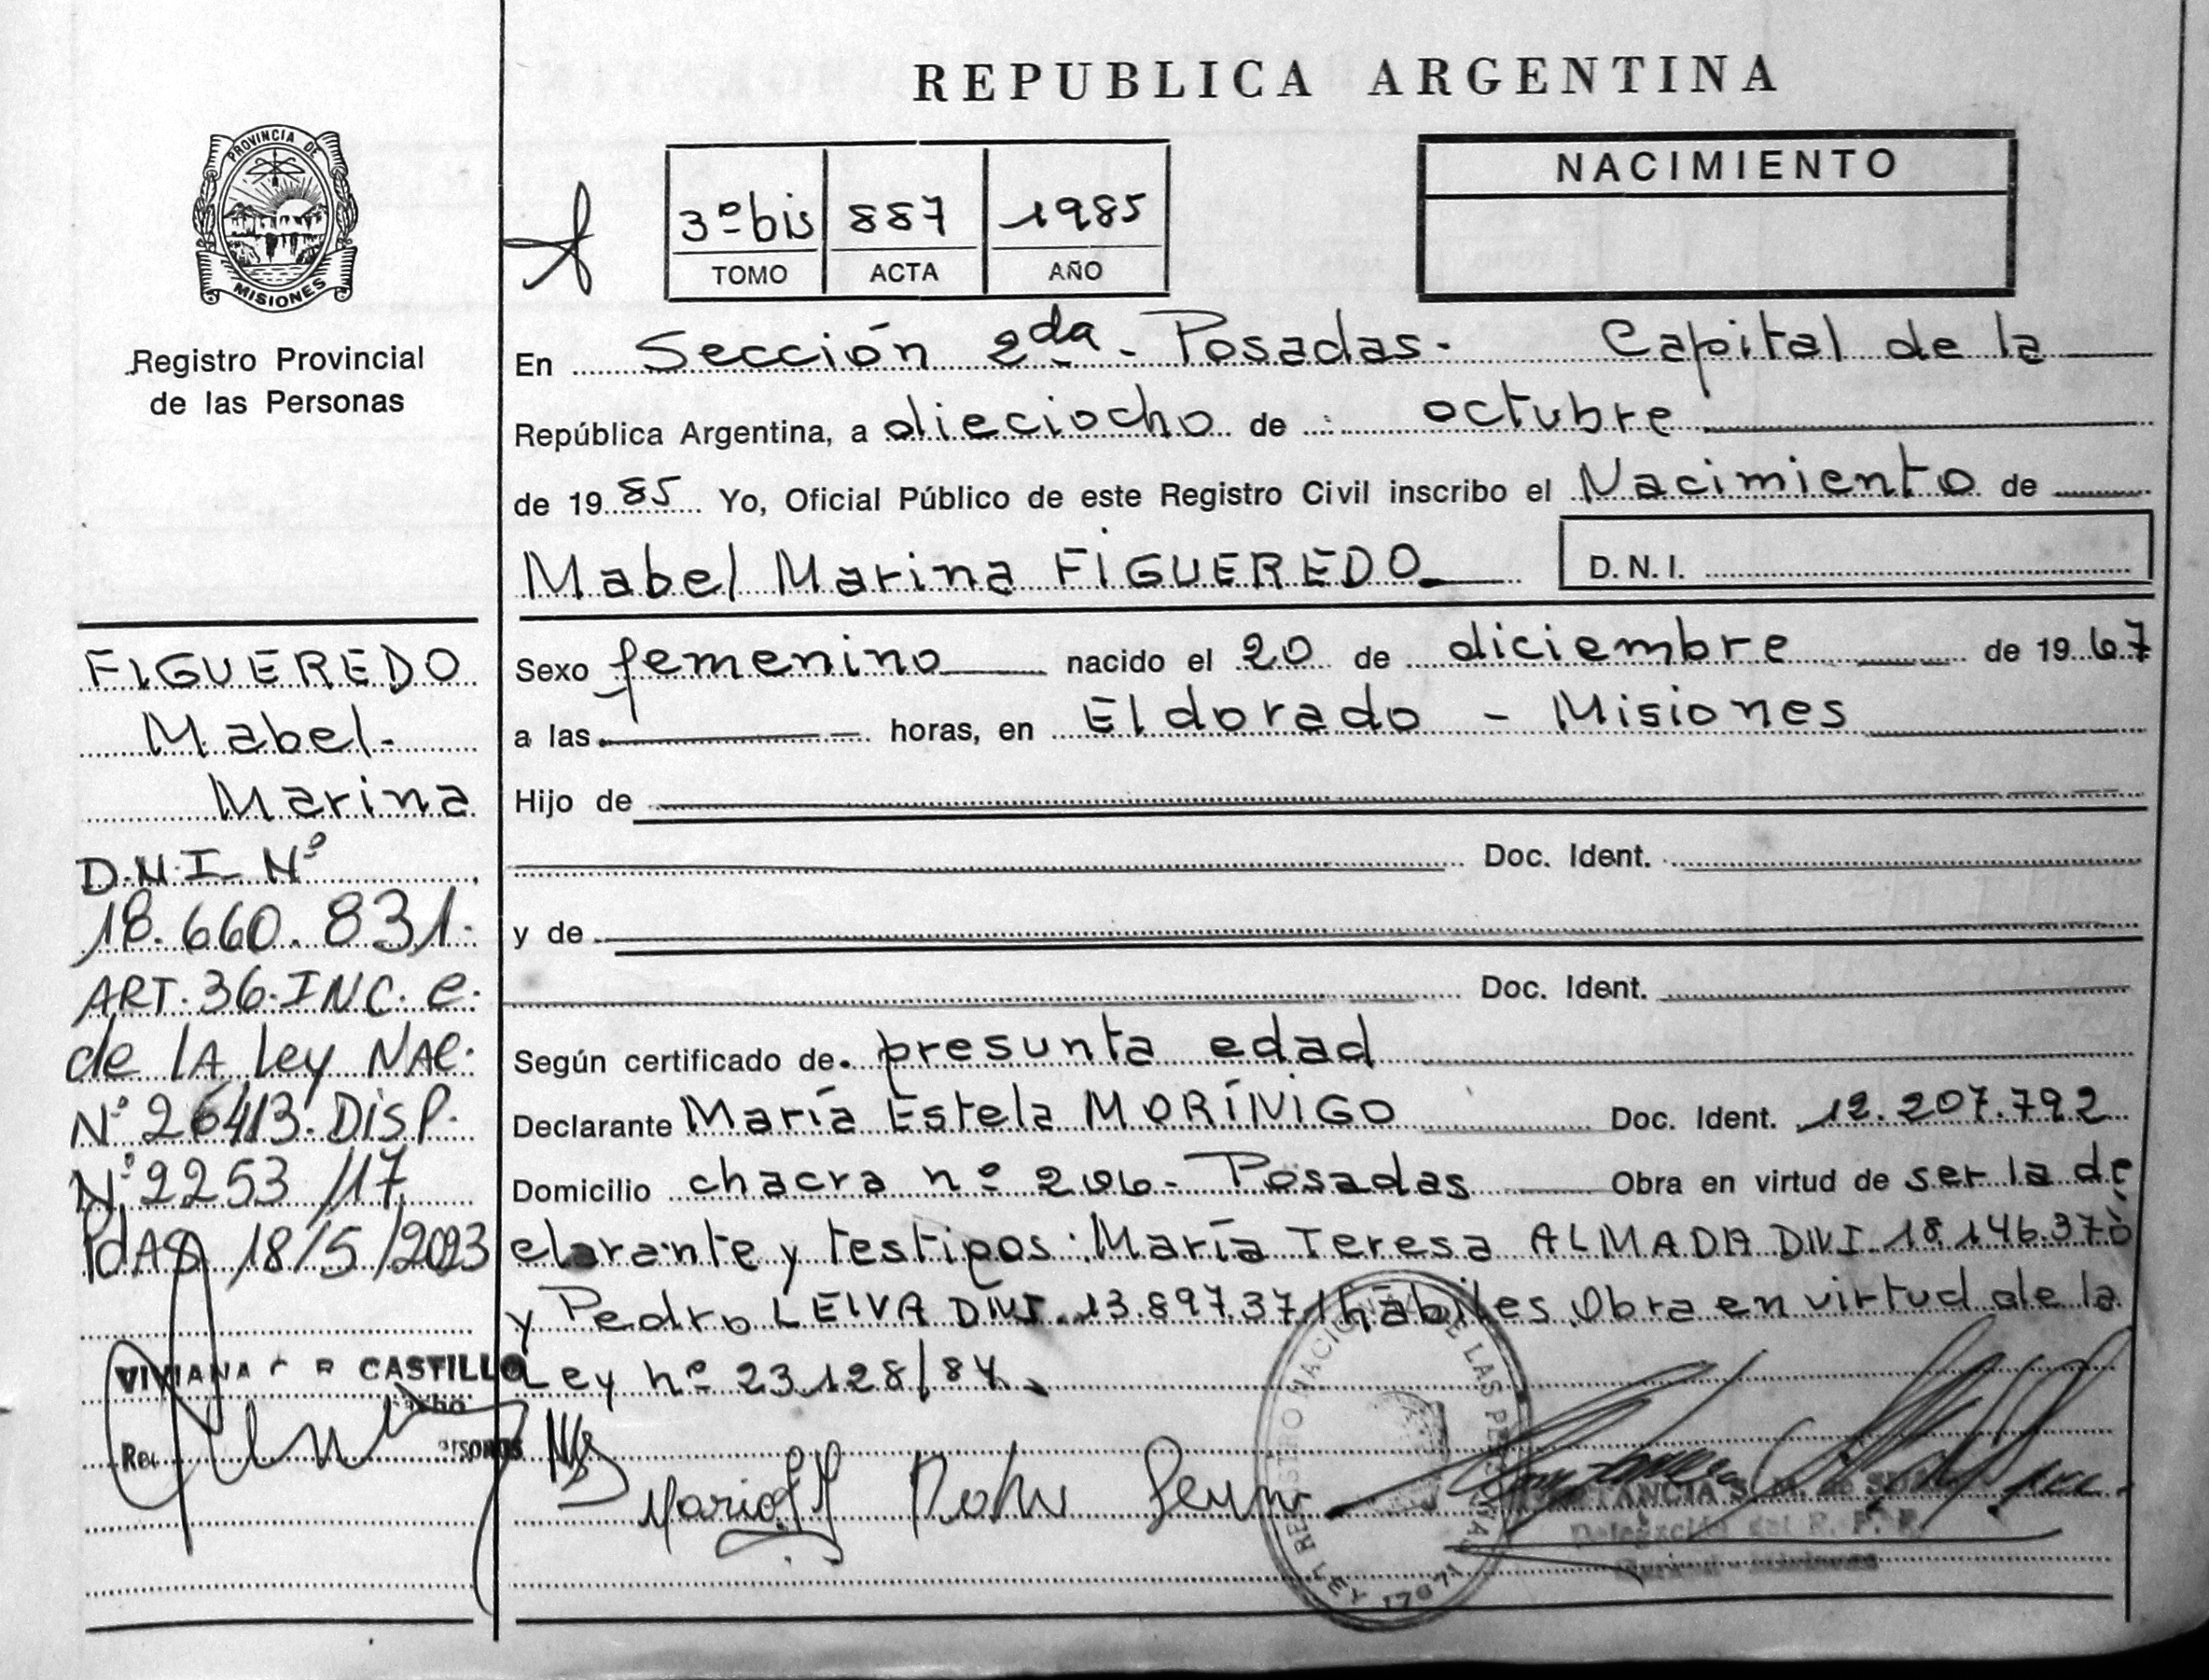 REPUBLICA ARGENTINA
PROVINCIA DE
MISIONES
Registro Provincial
de las Personas
3º bis 887 1985
TOMO ACTA AÑO
NACIMIENTO
En Sección 2da - Posadas - Capital de la
República Argentina, a dieciocho de octubre
de 1985 Yo, Oficial Público de este Registro Civil inscribo el Nacimiento de
Mabel Marina FIGUEREDO D.N.I.
Sexo femenino nacido el 20 de diciembre de 1967
a las horas, en Eldorado - Misiones
Hijo de
Doc. Ident.
y de
Doc. Ident.
Según certificado de presunta edad
Declarante María Estela MORÍNIGO Doc. Ident. 12.207.792
Domicilio chacra nº 206 - Posadas Obra en virtud de ser la de
clarante y testigos: María Teresa ALMADA DNI. 18.146.370
y Pedro LEIVA DNI. 13.897.371 hábiles. Obra en virtud de la
Ley nº 23.128/84.
FIGUEREDO
Mabel-
Marina
D.N.I. Nº
18.660.831.
ART. 36. INC. e.
de lA ley NAC.
Nº 26413. DISP.
Nº 2253/17
PdAS 18/5/2023
VIVIANA CASTILLO
REGISTRO NACIONAL DE LAS PERSONAS
LEY 17671
Delegación del R. P. P.